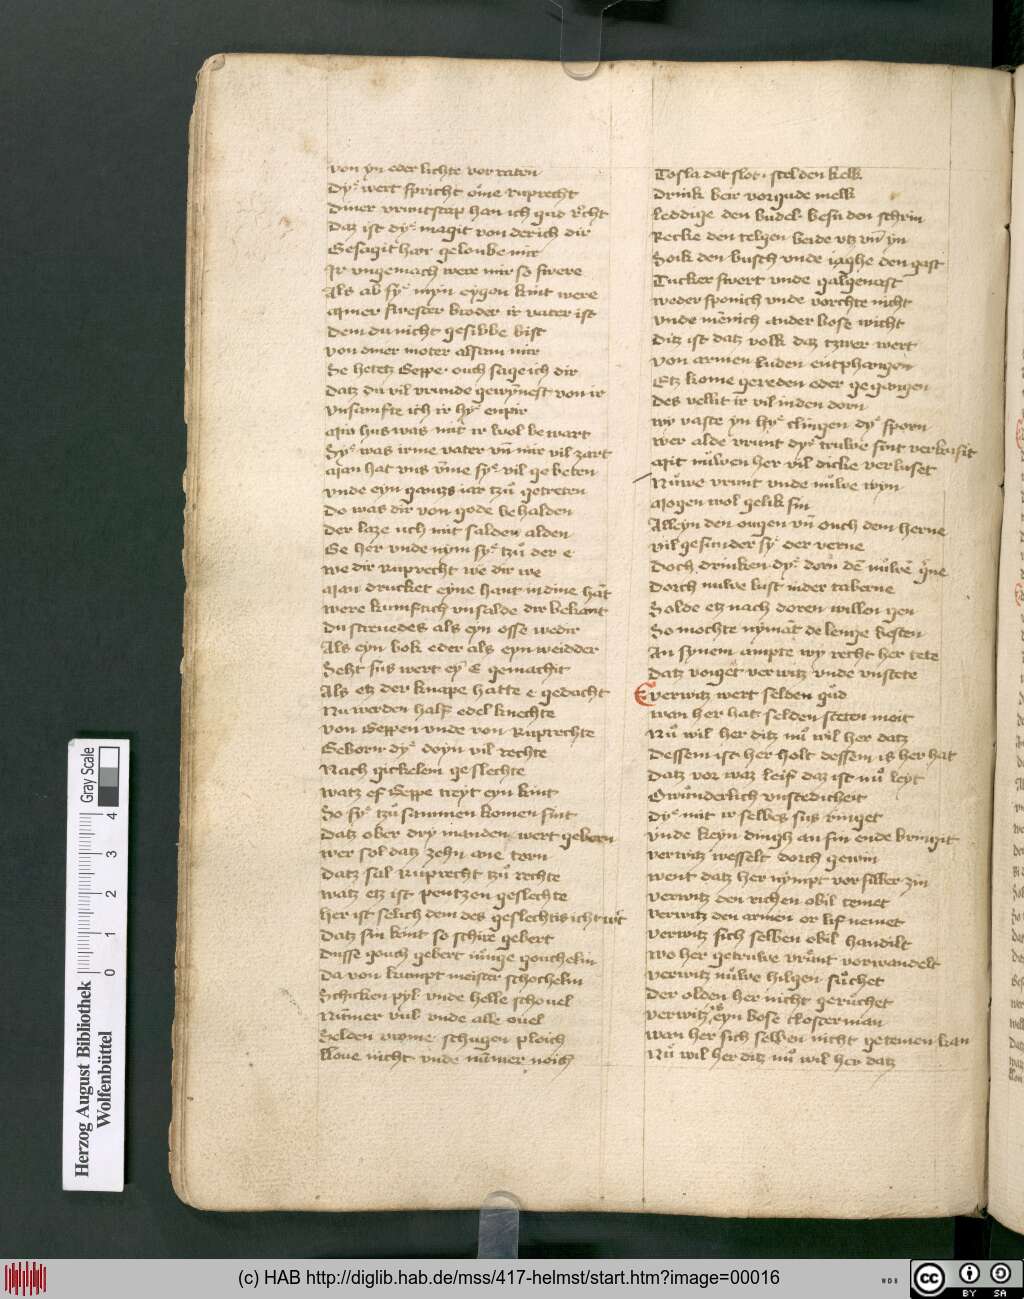 von yn eder lichte vor raten
dye wert spricht ome ruprecht
diner vruntscap han ich gud recht
Daz ist dye magit von der ich dir
Gesagit har geloube mir
Ir vngemach were mir so swere
Als ab sye myn eygon kint were
Myner swester broder ir vater ist
Dem du nicht gesibbe bist
von diner moter alsam mir
Se hetetz Seppe ouch sage ich dir
Datz du vil vrunde gewynest von ir
vnsamfte ich ir hye enpir
Myn hus was mit ir wol bewart
Sye was irme vater vnd mir vil zart
Man hat vns vmme sye vil gebeten
vnde eyn gantzs iar tzu getreten
Do was dir von gode behalden
der laze uch mit salden alden
Ge her vnde nym sye tzu der e
we dir Ruprecht we dir we
Man drucket eyne hant in dine hant
were kumftich vnsalde dir bekant
Du streuedes als eyn osse wedir
Als eyn bok eder als eyn weidder
Seht sus wert ey e gemachit
Als etz der knape hatte e gedacht
Nu werden half edel knechte
von Seppen vnde von Ruprechte
Geborn dye doyn vil rechte
Nach gickelem geslechte
watz ef Seppe treyt eyn kint
So sye tzu sammen komen sint
Datz ober dry manden wert geborn
wer sol datz zehn ane torn
Datz sal Ruprecht tzu rechte
watz etz ist pentzen geslechte
her ist selich dem des geslechtis icht wert
Datz sin kint so schire gebert
Disse gouch gebert iunge gouchelin
Da von kumpt meister schochelin
Schicken pyl vnde helle schouel
Nummer vul vnde alle ouel
Selden vrome schugen ploich
lloue nicht vnde nummer noich
Tosla dat slot stel den kelk
Drink beir vorgude melk
Leddige den budel besu den schrin
Recke den telgen beide vtz vnd yn
Soik den busch vnde iaghe den gast
Tucker swert vnde galgenast
weder sponich vnde vorchte nicht
vnde mennich ander bose wicht
Ditz ist datz volk daz tzwer wert
von armen luden entphangen
Etz kome gereden oder gegangen
des vellit ir vil in den dorn
wy vaste yn hye clingen dye sporn
wer alde vrunt dyr truwe sint verkusit
Mit nuwen her vil dicke verluset
Nuwe vrunt vnde nuwe wyn
Mogen wol gelik sin
Alleyn den ougen vnd ouch dem herne
vil gesunder sye der verne
Doch drinken dye dorn den nuwen gerne
Dorch nuwe lust in der taberne
Solde etz nach doren willen gen
So mochte nymant de lenge besten
An synem ampte wy recht her tete
Datz voiget verwitz vnde vnstete
Verwitz wert selden gud
wan her hat selden steten moit
Nu wil her ditz nu wil her datz
Dessem ist her holt dessem is her hat
Datz vor waz leif daz ist nu leyt
O wunderlich vnstedicheit
Dye mit ir selbes sus ringet
vnde keyn dingh an sin ende bringit
verwitz wesselt dorch gewin
went datz her nympt vor silber zin
verwitz den richen obil temet
verwitz den armen or lif nemet
verwitz sich selben obil handilt
wo her getruwe vrunt vorwandelt
verwitz nuwe hilgen suchet
Der olden her nicht geruchet
verwitz is eyn bose closterman
wan her sich selben nicht getemen kan
Nu wil her ditz nu wil her datz
Herzog August Bibliothek
Wolfenbüttel
0 1 2 3 4
Gray Scale
(c) HAB http://diglib.hab.de/mss/417-helmst/start.htm?image=00016
WDB
cc
BY SA